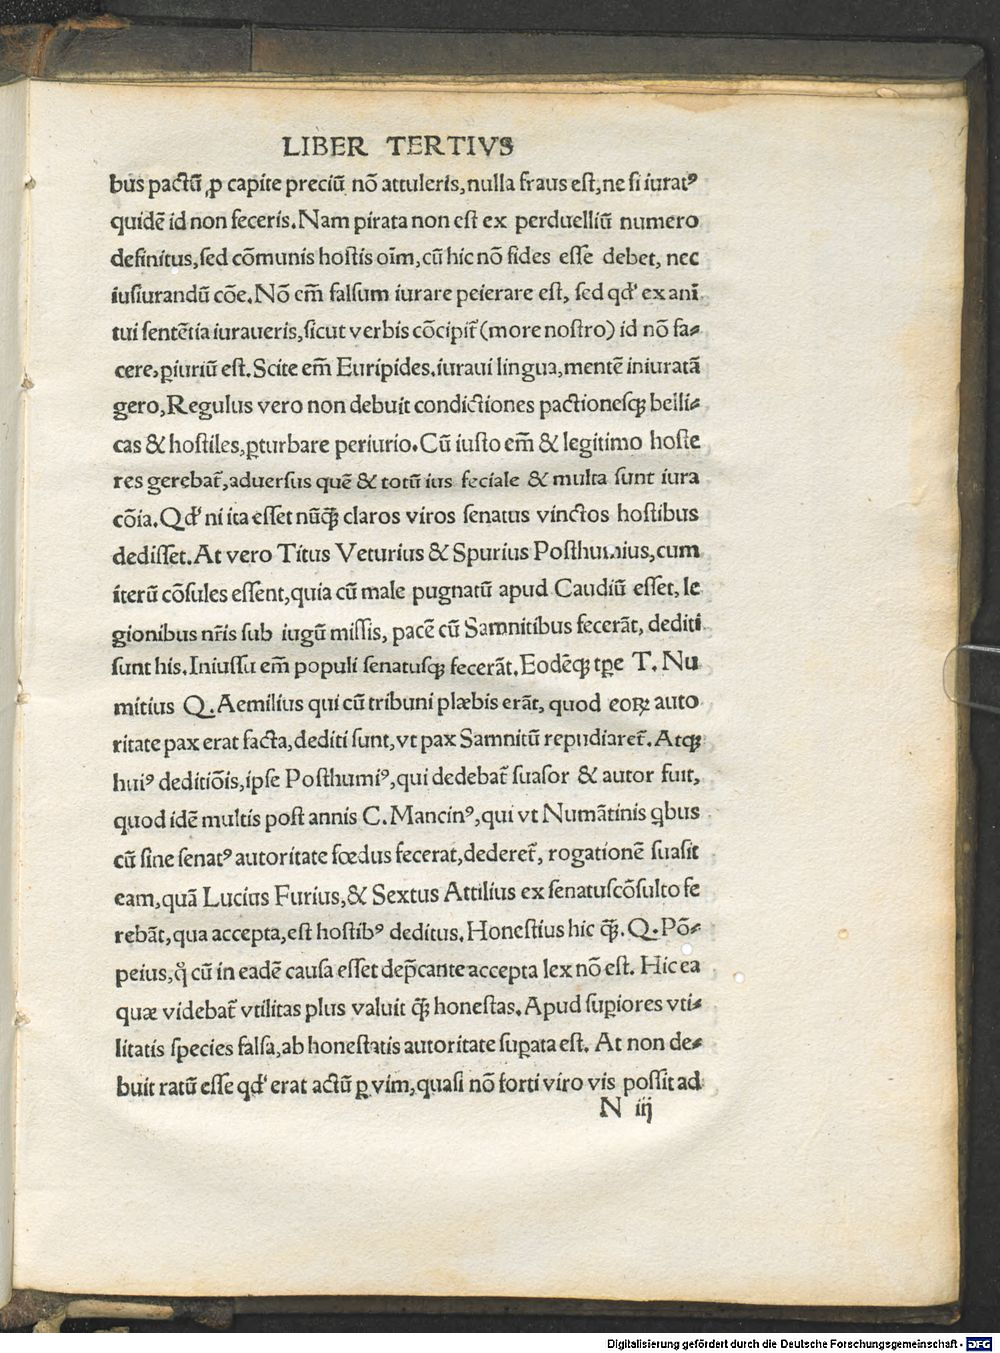 LIBER TERTIVS
bus pactū ꝓ capite preciū nō attuleris, nulla fraus eſt, ne ſi iuratꝰ
quidē id non feceris. Nam pirata non eſt ex perduelliū numero
definitus, ſed cōmunis hoſtis oīm, cū hic nō fides eſſe debet, nec
iuſiurandū cōe. Nō em̄ falſum iurare peierare eſt, ſed qď ex ani
tui ſentētia iuraueris, ſicut verbis cōcipit᷑ (more noſtro) id nō fa⸗
cere, ꝑiuriū eſt. Scite em̄ Euripides. iuraui lingua, mentē iniuratā
gero, Regulus vero non debuit condictiones pactioneſqꝫ belli⸗
cas & hoſtiles, ꝑturbare periurio. Cū iuſto em̄ & legitimo hoſte
res gerebat᷑, aduerſus quē & totū ius feciale & multa ſunt iura
cōia. Qď ni ita eſſet nūqꝫ̄ claros viros ſenatus vinctos hoſtibus
dediſſet. At vero Titus Veturius & Spurius Poſthumius, cum
iterū cōſules eſſent, quia cū male pugnatū apud Caudiū eſſet, le
gionibus nr̄is ſub iugū miſſis, pacē cū Samnitibus fecerāt, dediti
ſunt his. Iniuſſu em̄ populi ſenatuſqꝫ fecerāt. Eodēqꝫ tꝑe T. Nu
mitius Q. Aemilius qui cū tribuni plæbis erāt, quod eoꝝ auto
ritate pax erat facta, dediti ſunt, vt pax Samnitū repudiaret᷑. Atqꝫ
huiꝰ deditiōis, ipſe Poſthumiꝰ, qui dedebat᷑ ſuaſor & autor fuit,
quod idē multis poſt annis C. Mancinꝰ, qui vt Numātinis qbus
cū ſine ſenatꝰ autoritate fœdus fecerat, dederet᷑, rogationē ſuaſit
eam, quā Lucius Furius, & Sextus Attilius ex ſenatuſcōſulto fe
rebāt, qua accepta, eſt hoſtibꝰ deditus. Honeſtius hic qꝫ̄. Q. Pō⸗
peius, qͦ cū in eadē cauſa eſſet dep̄cante accepta lex nō eſt. Hic ea
quæ videbat᷑ vtilitas plus valuit qꝫ̄ honeſtas. Apud ſuꝑiores vti⸗
litatis ſpecies falſa, ab honeſtatis autoritate ſuꝑata eſt. At non de⸗
buit ratū eſſe qď erat actū ꝑ vim, quaſi nō forti viro vis poſſit ad
N iij
Digitalisierung gefördert durch die Deutsche Forschungsgemeinschaft - DFG